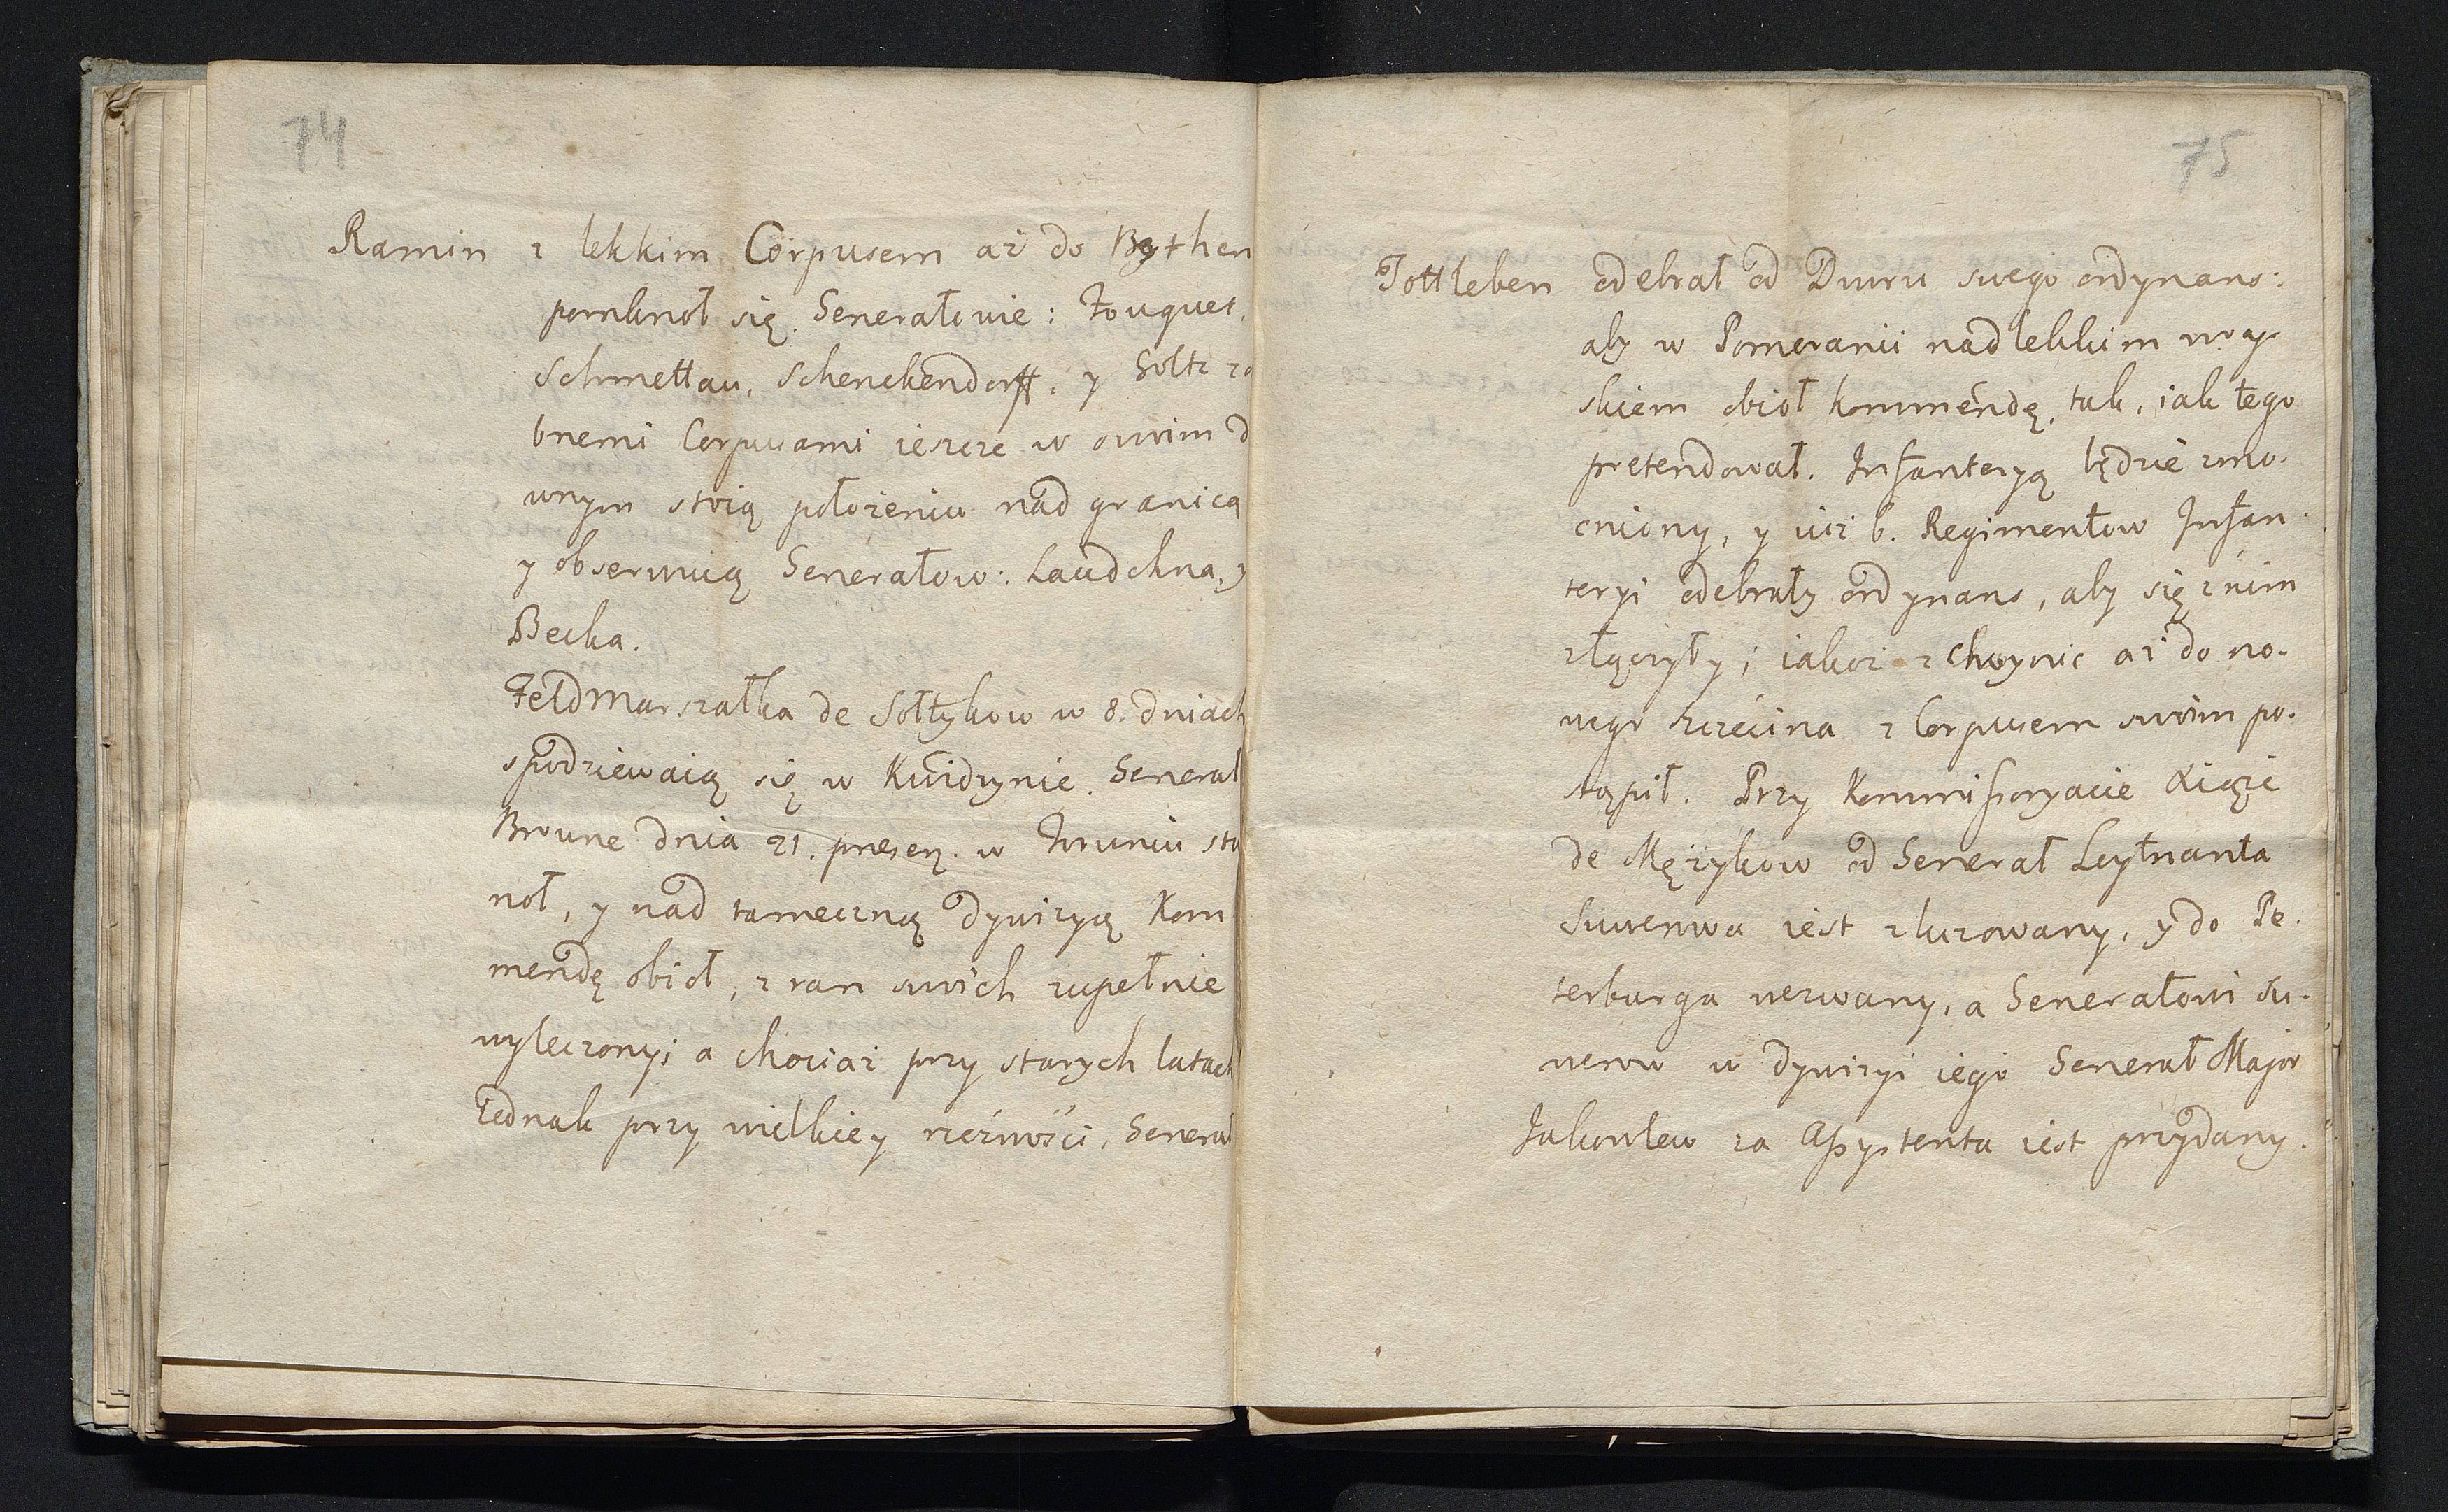 74
Ramin z lekkim Corpusem aż do Bythen
pomknoł się. Generałowie: Fouquet,
Schmettau, Schenckendorff, y Goltz zo
bnemi Corpusami ieszcze w swoim d
wnym stoią położeniu nad granicą
y obserwuią Generałow: Laudohna, y
Becka.
Feldmarszałka de Sołtykow w 8. dniach
spodziewaią się w Kwidzynie. Generał
Browne dnia 21. presen. w Toruniu sta
noł, y nad tameczną dywizyą Kom
mendę obioł, z ran swoich zupełnie
wyleczony; a chociaż przy starych latach
iednak przy wielkiey rzeźwości. Generał
75
Tottleben odebrał od Dworu swego ordynans:
aby w Pomeranii nad lekkim woy-
skiem obioł kommendę, tak, iak tego
pretendował. Infanteryą będzie zmo-
cniony, y iuż 6. Regimentow Infan-
teryi odebrały ordynans, aby się z nim
złączyły; iakoż z Choynic aż do no-
wego Szczecina z Corpusem swoim po-
stąpił. Przy Kommissoryacie Xiąże
de Mężykow od Generał Leytnanta
Suworowa iest zluzowany, y do Pe-
terburga wezwany, a Generałowi Su-
worow w dywizyi iego Generał Major
Jakowlew za Assystenta iest przydany.